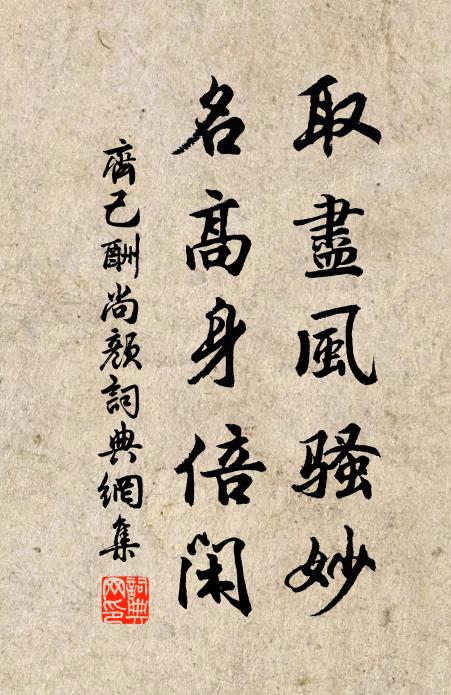 取盡風騷妙
名高身倍閑
齊己酬尚顏詞典網集
詞典